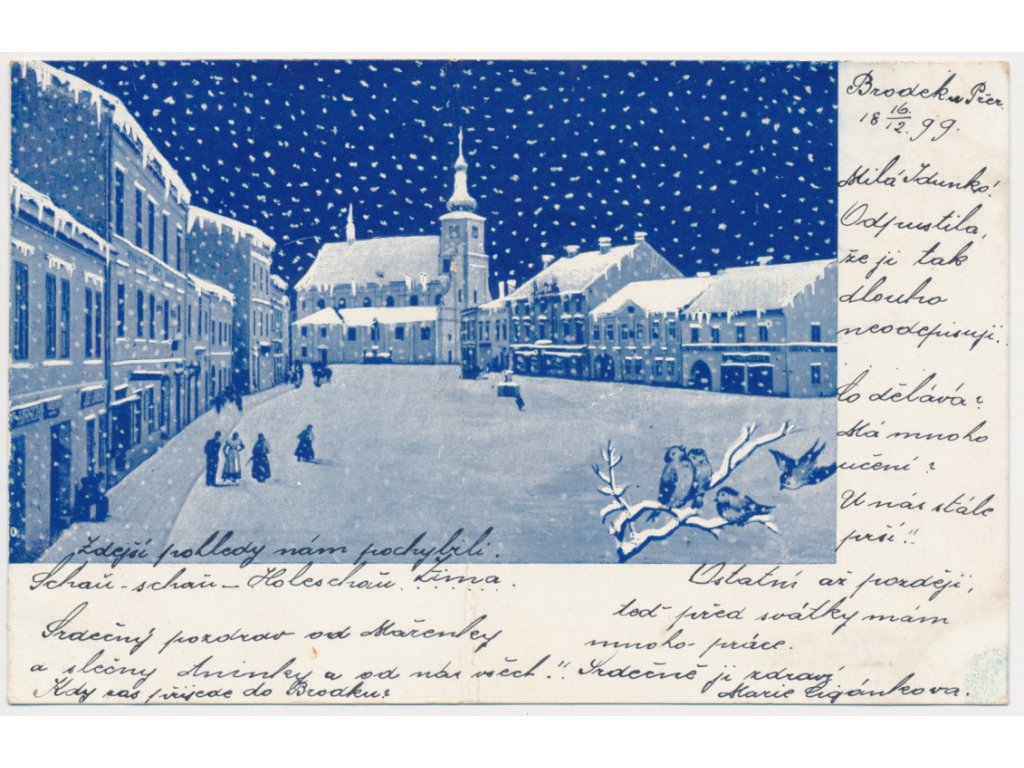 Brodek u Přer.
18 16/12. 99.
Milá Idunko!
Odpustila,
že ji tak
dlouho
neodepisuji.
Co dělává?
Má mnoho
učení?
U nás stále
prší!!
Ostatní až později,
teď před svátky mám
mnoho práce.
Srdečně ji zdraví
Marie Cigánkova.
Zdejší pohledy nám pochybili.
Schau-schau-Holeschau. Zima.
Srdečný pozdrav od Mařenky
a slečny Aninky a od nás všech!!
Kdy zas přijede do Brodku?